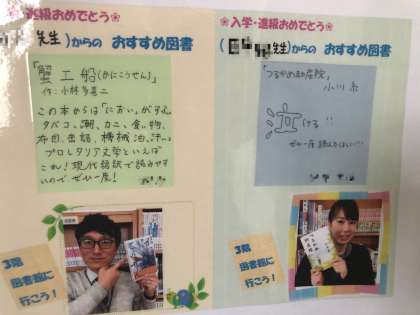 進級おめでとう
先生)からの おすすめ図書
「蟹工船(かにこうせん)」
作:小林多喜二
この本からは「におい」がする
タバコ、潮、カニ、食い物、
布団、缶詰、機械油、
プロレタリア文学といえば
これ!現代語訳で読みやす
いので、ぜひ一度!
3階
図書館に
行こう!
入学・進級おめでとう
先生)からの おすすめ図書
「つるかめ助産院」
小川 糸
泣ける!!
ぜひ一度読んでほしい
3階
図書館に
行こう!